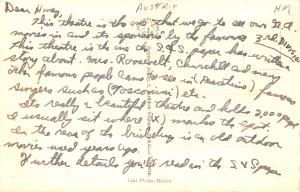 Dear Huey, AUSTRIA HM
This theatre is the one that we go to see our U.S.
movies in and its sponsored by the famous 3rd Division
this theatre is the one the S.&S. paper has written a
story about. Mrs. Roosevelt, Churchill and many
other famous people came to see in (
) famous
singers such as (Toscanini) etc.
Its really a beautiful theatre and holds 2,000 ppl
I usually sit where (X) marks the spot.
In the rear of the building is an old outdoor
movies used years ago.
Further details you'll read in the S&S paper